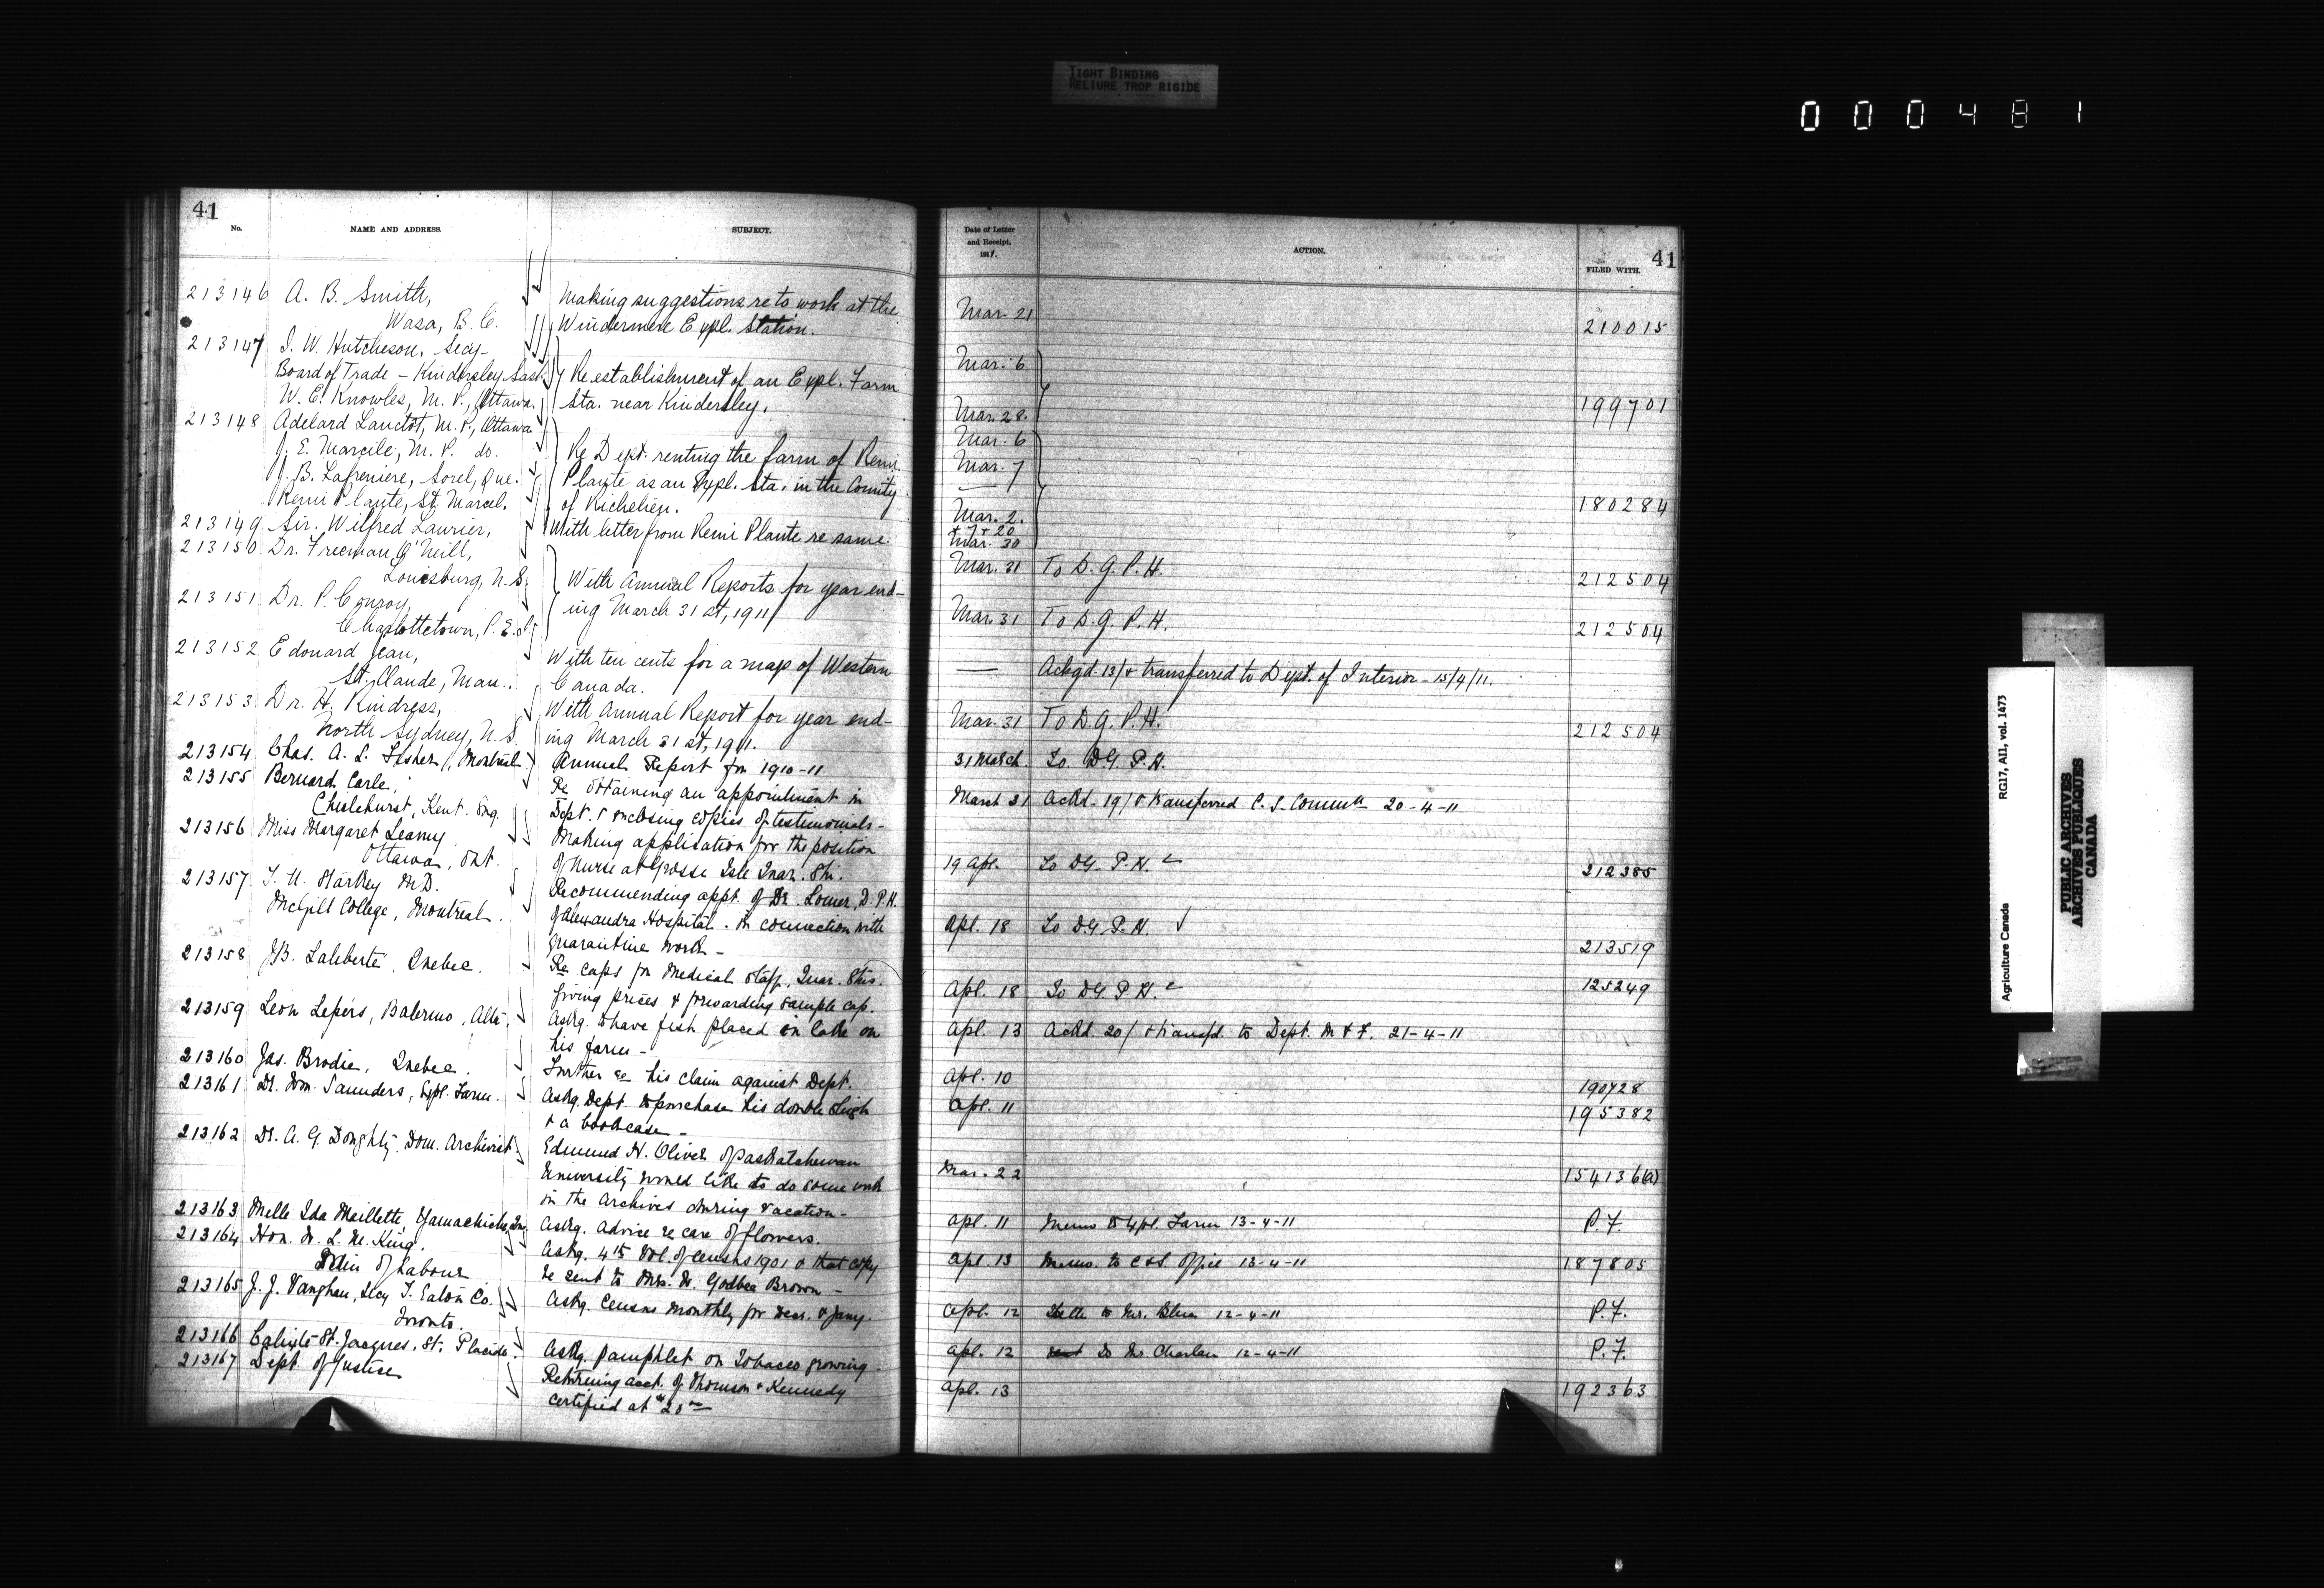 TIGHT BINDING
RELIURE TROP RIGIDE
000481
41
No.
NAME AND ADDRESS.
SUBJECT.
213146 A. B. Smith,
Wasa, B. C.
Making suggestions re to work at the
Windermere Expl. Station.
213147 J. W. Hutcheson, Secy-
Board of Trade - Kindersley Sask.
W. E. Knowles, M. P., Ottawa.
Re establishment of an Expl. Farm
Sta. near Kindersley.
213148 Adelard Lanctôt, M. P., Ottawa
J. E. Marcile, M. P. do.
J. B. Lafreniere, Sorel, Que.
Remi Plante, St. Marcel.
Re Dept. renting the farm of Remi
Plante as an Expl. Sta. in the County
of Richelieu.
213149 Sir. Wilfred Laurier,
With letter from Remi Plante re same.
213150 Dr. Freeman O'Neill,
Louisburg, N. S.
213151 Dr. P. Conroy,
Charlottetown, P. E. I.
With Annual Reports for year end-
ing March 31st, 1911
213152 Edouard Jean,
St. Claude, Man.
With ten cents for a map of Western
Canada.
213153 Dr. H. Kindress,
North Sydney, N. S.
With Annual Report for year end-
ing March 31st, 1911.
213154 Chas. A. L. Fisher, Montreal
Annual Report for 1910-11
213155 Bernard Carle,
Chislehurst, Kent. Eng.
Re obtaining an appointment in
Dept. & enclosing copies of testimonials-
213156 Miss Margaret Leamy
Ottawa, Ont.
Making application for the position
of Nurse at Grosse Isle Quar. Stn.
213157 T. A. Starkey M.D.
McGill College, Montreal.
Recommending appt. of Dr. Lomer, D. P. H.
of Alexandra Hospital. in connection with
quarantine work-
213158 J.B. Laliberté, Quebec.
Re caps for medical staff, Quar. Stns.
giving prices & forwarding sample cap.
213159 Leon Lepers, Balermo, Alta.
Askg. to have fish placed in lake on
his farm-
213160 Jas. Brodie, Quebec.
Further re his claim against Dept.
213161 Dr. Wm. Saunders, Expl. Farm.
Askg. Dept. to purchase his double sleigh
& a bookcase-
213162 Dr. A. G. Doughty, Dom. Archivist
Edmund H. Oliver of Saskatchewan
University would like to do some work
in the Archives during vacation-
213163 Melle Ida Maillette, Yamachiche, Que.
Askg. advice re care of flowers.
213164 Hon. W. L. M. King.
Min of Labour
Askg. 4th Vol. of Census 1901 & that copy
be sent to Mrs. W. Godbee Brown-
213165 J. J. Vaughan, Secy T. Eaton Co.
Toronto.
Askg. Census Monthly for Decr. & Jany.
213166 Calixte St. Jacques, St. Placide.
Askg. pamphlet on Tobacco growing-
213167 Dept. of Justice
Returning acct. of Thomson & Kennedy
certified at $20
Date of Letter
and Receipt,
1911.
ACTION.
FILED WITH.
41
Mar. 21 210015
Mar. 6
Mar. 28. 199701
Mar. 6
Mar. 7
180284
Mar. 2.
Mar. 30
Mar. 31 To D. G. P. H. 212504
Mar. 31 To D. G. P. H. 212504
— Ackgd. 13/ & transferred to Dept. of Interior - 15/4/11.
Mar. 31 To D. G. P. H. 212504
31 March. To. D.G. P. H.
March 31 Ackd. 19/ & transferred C. S. Commn 20-4-11
19 Apl. To D.G. P. H. 212385
Apl. 18 To D.G. P. H. 213519
Apl. 18 To D.G. P. H. 125249
Apl. 13 Ackd. 20/ & transfd. to Dept. M & F. 21-4-11
Apl. 10 190728
Apl. 11 195382
Mar. 22 154136(a)
Apl. 11 Memo to Expl. Farm 13-4-11 P. F.
Apl. 13 Memo. to C & S Office 13-4-11 187805
Apl. 12 to Mr. Blue 12-4-11 P. F.
Apl. 12 To Mr Charlan 12-4-11 P. F.
Apl. 13 192363
Agriculture Canada
RG17, AI1, vol. 1473
PUBLIC ARCHIVES
ARCHIVES PUBLIQUES
CANADA